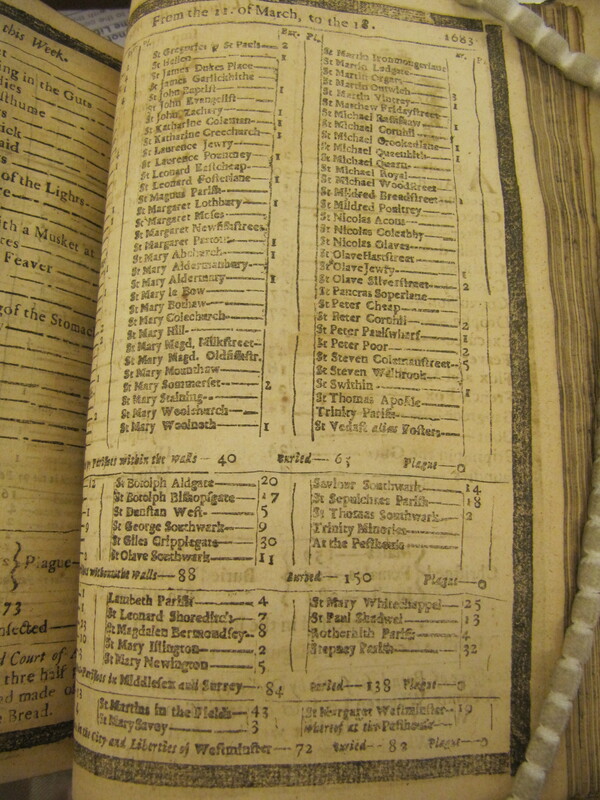 this Week.
ing in the Guts
dies
sthume
rick
aid
rs
of the Lights
re
ith a Musket at
res
Feaver
g of the Stomac
Plague
73
nfected
d Court of
thre half
d made of
Bread.
From the 11. of March, to the 18. 1683
Bur. Pl.
St Gregories by St Pauls 2
St Hellen 1
St James Dukes Place
St James Garlickhithe
St John Baptist 1
St John Evangelist
St John Zachary 1
St Katharine Coleman 1
St Katharine Creechurch 1
St Laurence Jewry
St Laurence Pountney 1
St Leonard Eastcheap
St Leonard Fosterlane 1
St Magnus Parish
St Margaret Lothbury 1
St Margaret Moses
St Margaret Newfishstreet
St Margaret Pattons 1
St Mary Abchurch 1
St Mary Aldermanbury
St Mary Aldermary 1
St Mary le Bow
St Mary Bothaw
St Mary Colechurch
St Mary Hill
St Mary Magd. Milkstreet
St Mary Magd. Oldfishstr.
St Mary Mounthaw
St Mary Sommerset 2
St Mary Staining
St Mary Woolchurch
St Mary Woolnoth 1
St Martin Ironmongerlane
St Martin Ludgate
St Martin Orgars
St Martin Outwich
St Martin Vintrey 3
St Matthew Fridaystreet
St Michael Bassishaw 1
St Michael Cornhil
St Michael Crookedlane 1
St Michael Queenhith 1
St Michael Quern
St Michael Royal
St Michael Woodstreet
St Mildred Breadstreet 1
St Mildred Poultrey
St Nicolas Acons
St Nicolas Coleabby
St Nicolas Olaves
St Olave Hartstreet
St Olave Jewry 1
St Olave Silverstreet 2
St Pancras Soperlane
St Peter Cheap
St Peter Cornhil 2
St Peter Paulswharf 1
St Peter Poor 2
St Steven Colemanstreet 5
St Steven Walbrook
St Swithin 1
St Thomas Apostle
Trinity Parish
St Vedast alias Fosters
Parishes within the walls 40 Buried 65 Plague 0
St Botolph Aldgate 20
St Botolph Bishopsgate 17
St Dunstan West 5
St George Southwark 9
St Giles Cripplegate 30
St Olave Southwark 11
Saviour Southwark 14
St Sepulchres Parish 18
St Thomas Southwark 2
Trinity Minories
At the Pesthouse
without the Walls 88 Buried 150 Plague 0
Lambeth Parish 4
St Leonard Shoreditch 7
St Magdalen Bermondsey 8
St Mary Islington 2
St Mary Newington 5
St Mary Whitechappel 25
St Paul Shadwel 13
Rotherhith Parish 4
Stepney Parish 32
Parishes in Middlesex and Surrey 84 Buried 138 Plague 0
St Martins in the Fields 43
St Mary Savoy 3
St Margaret Westminster 19
whereof at the Pesthouse
the City and Liberties of Westminster 72 Buried 82 Plague 0